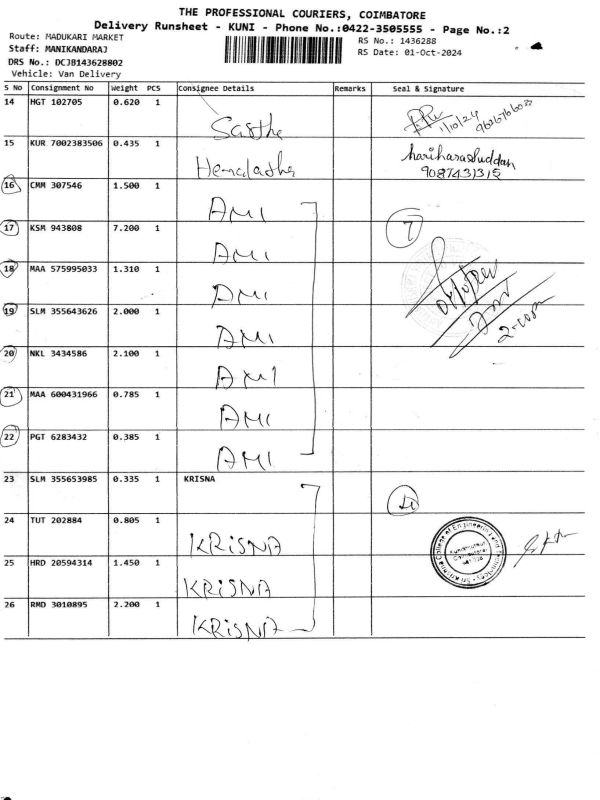 THE PROFESSIONAL COURIERS, COIMBATORE
Delivery Runsheet - KUNI - Phone No.:0422-3505555 - Page No.:2
Route: MADUKARI MARKET
RS No.: 1436288
Staff: MANIKANDARAJ
RS Date: 01-Oct-2024
DRS No.: DCJB143628802
Vehicle: Van Delivery
S No Consignment No Weight PCS Consignee Details Remarks Seal & Signature
14 HGT 102705 0.620 1 Sasthe 1/10/24
15 KUR 7002383506 0.435 1 Hemalatha hariharasluddan
9087431315
16 CMM 307546 1.500 1 AMI
17 KSM 943808 7.200 1 AMI 7
18 MAA 575995033 1.310 1 AMI
19 SLM 355643626 2.000 1 AMI
20 NKL 3434586 2.100 1 AMI
21 MAA 600431966 0.785 1 AMI
22 PGT 6283432 0.385 1 AMI
23 SLM 355653985 0.335 1 KRISNA
24 TUT 202884 0.805 1 KRISNA
25 HRD 20594314 1.450 1 KRISNA
26 RMD 3010895 2.200 1 KRISNA